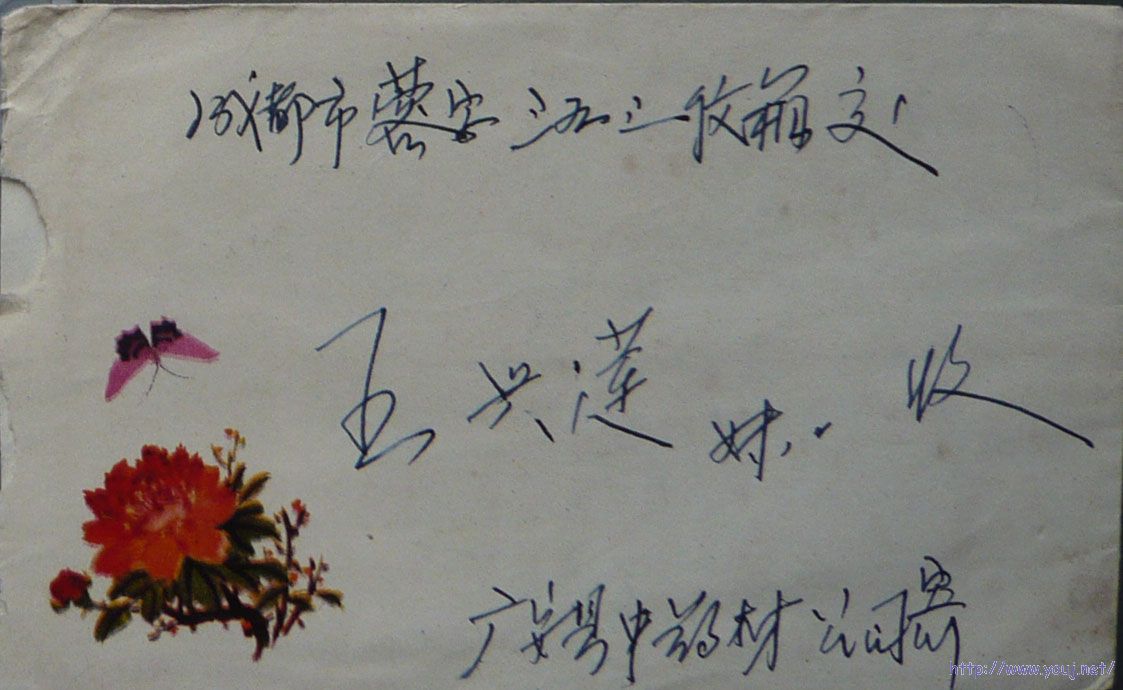 成都市蓉字三五三收 交
王兴莲妹收
广安县中药材公司寄
http://www.youj.net/